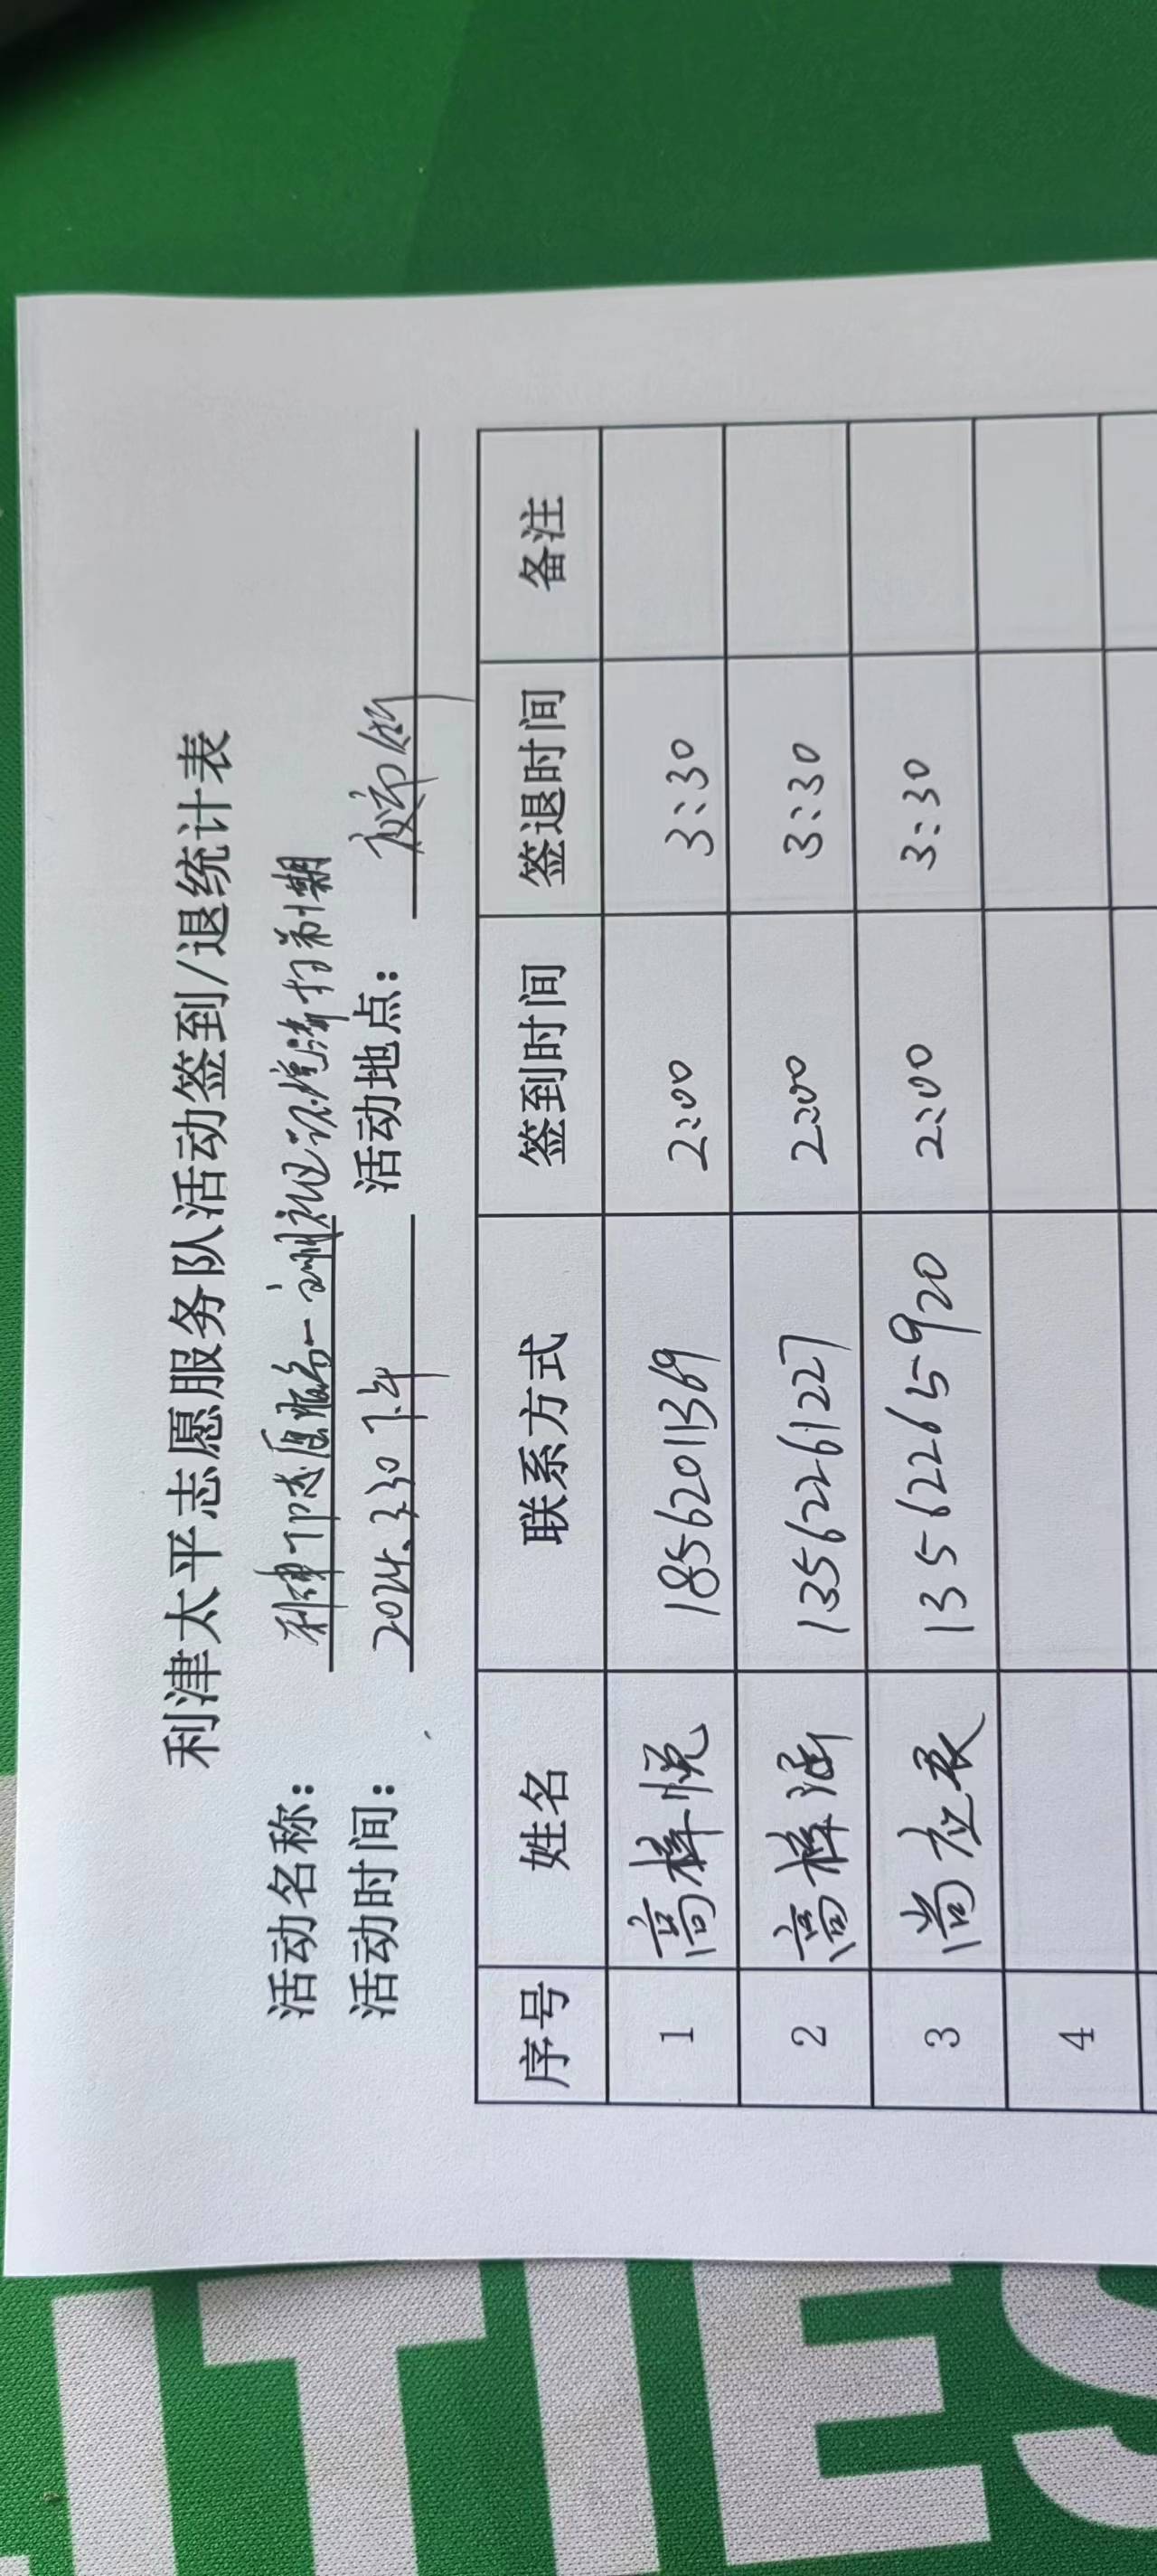 利津太平志愿服务队活动签到/退统计表
活动名称: 利津 志愿服务 社区环境清扫第1期
活动时间: 2024.3.30 下午 活动地点: 夜市
序号 姓名 联系方式 签到时间 签退时间 备注
1 高梓悦 18562011369 2:00 3:30
2 高梓涵 13562261227 2:00 3:30
3 尚应表 13562265920 2:00 3:30
4
ITIES